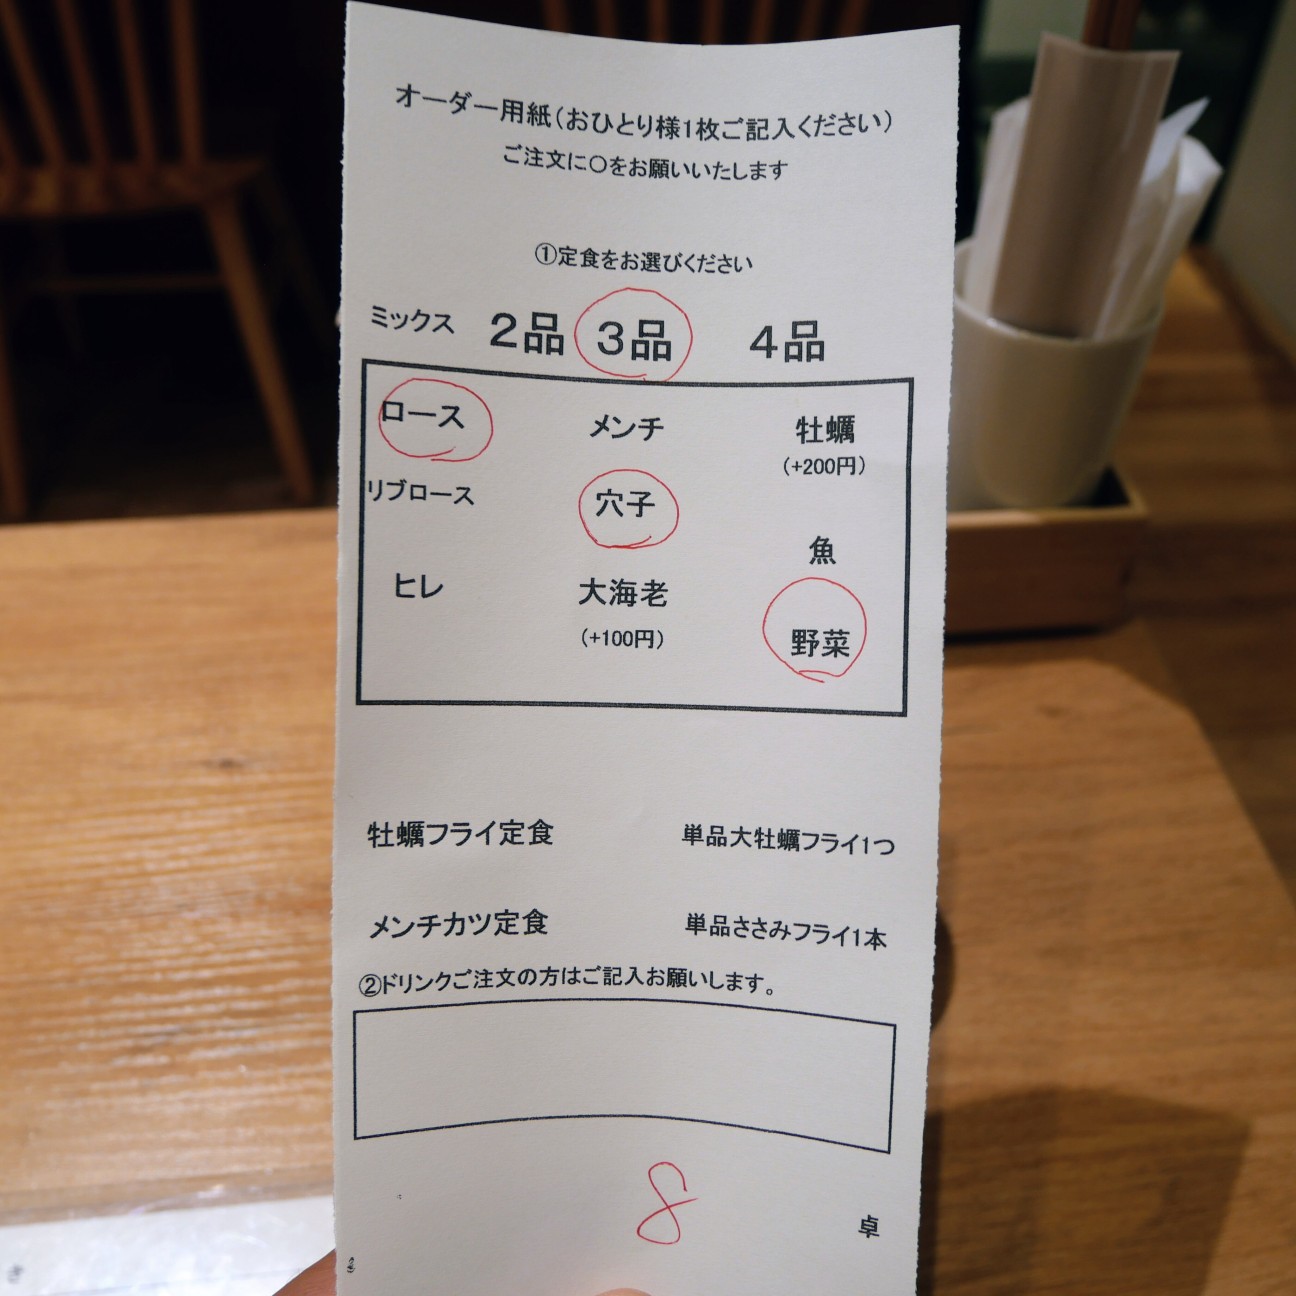 オーダー用紙(おひとり様1枚ご記入ください)
ご注文に○をお願いいたします
①定食をお選びください
ミックス 2品 3品 4品
ロース メンチ 牡蠣
(+200円)
リブロース 穴子
魚
ヒレ 大海老
(+100円) 野菜
牡蠣フライ定食 単品大牡蠣フライ1つ
メンチカツ定食 単品ささみフライ1本
②ドリンクご注文の方はご記入お願いします。
8 卓